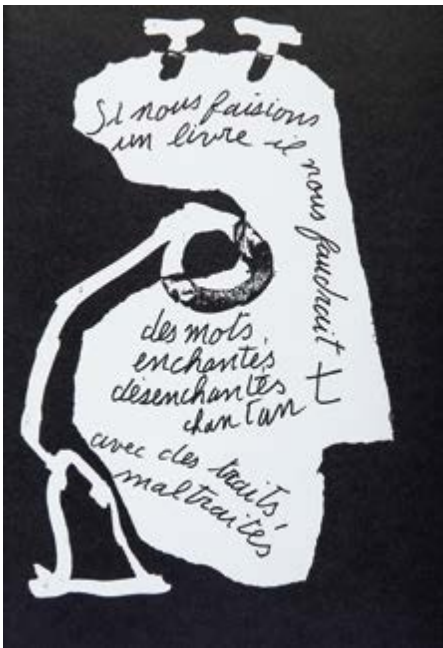 Si nous faisions
un livre il nous faudrait +
des mots
enchantés
désenchantés
chantant
avec des traits
maltraités